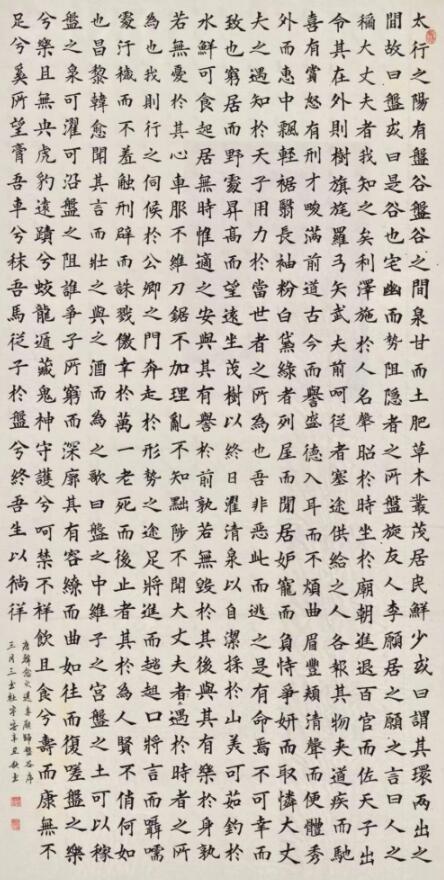 太行之陽有盤谷盤谷之間泉甘而土肥草木叢茂居民鮮少或曰謂其環兩山之
間故曰盤或曰是谷也宅幽而勢阻隱者之所盤旋友人李愿居之愿之言曰人之
稱大丈夫者我知之矣利澤施於人名聲昭於時坐於廟朝進退百官而佐天子出
令其在外則樹旗旄羅弓矢武夫前呵從者塞途供給之人各執其物夾道疾而馳
喜有賞怒有刑才畯滿前道古今而譽盛德入耳而不煩曲眉豐頰清聲而便體秀
外而惠中飄輕裾翳長袖粉白黛綠者列屋而閒居妒寵而負恃爭妍而取憐大丈
夫之遇知於天子用力於當世者之所為也吾非惡此而逃之是有命焉不可幸而
致也窮居而野處昇高而望遠坐茂樹以終日濯清泉以自潔採於山美可茹釣於
水鮮可食起居無時惟適之安與其有譽於前孰若無毀於其後與其有樂於身孰
若無憂於其心車服不維刀鋸不加理亂不知黜陟不聞大丈夫不遇於時者之所
為也我則行之伺候於公卿之門奔走於形勢之途足將進而趑趄口將言而囁嚅
處汙穢而不羞觸刑辟而誅戮僥倖於萬一老死而後止者其於為人賢不肖何如
也昌黎韓愈聞其言而壯之與之酒而為之歌曰盤之中維子之宮盤之土可以稼
盤之泉可濯可沿盤之阻誰爭子所窈而深廓其有容繚而曲如往而復嗟盤之樂
兮樂且無央虎豹遠蹟兮蛟龍遁藏鬼神守護兮呵禁不祥飲且食兮壽而康無不
足兮奚所望膏吾車兮秣吾馬從子於盤兮終吾生以徜徉
唐韓愈之送李愿歸盤谷序
三月三